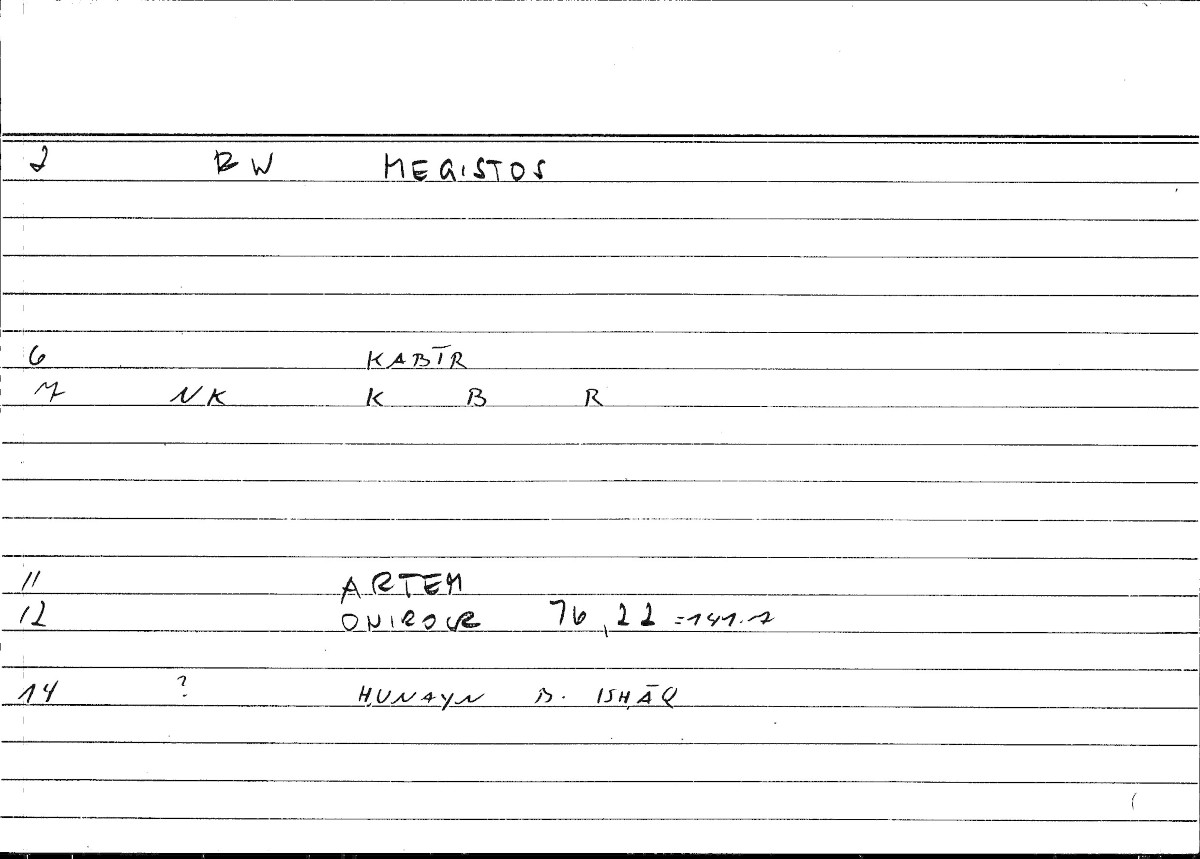 2 BW MEGISTOS
6 KABĪR
7 NK K B R
11 ARTEM
12 ONIROCR 76,22 =141.7
14 ? ḤUNAYN B. ISḤĀQ